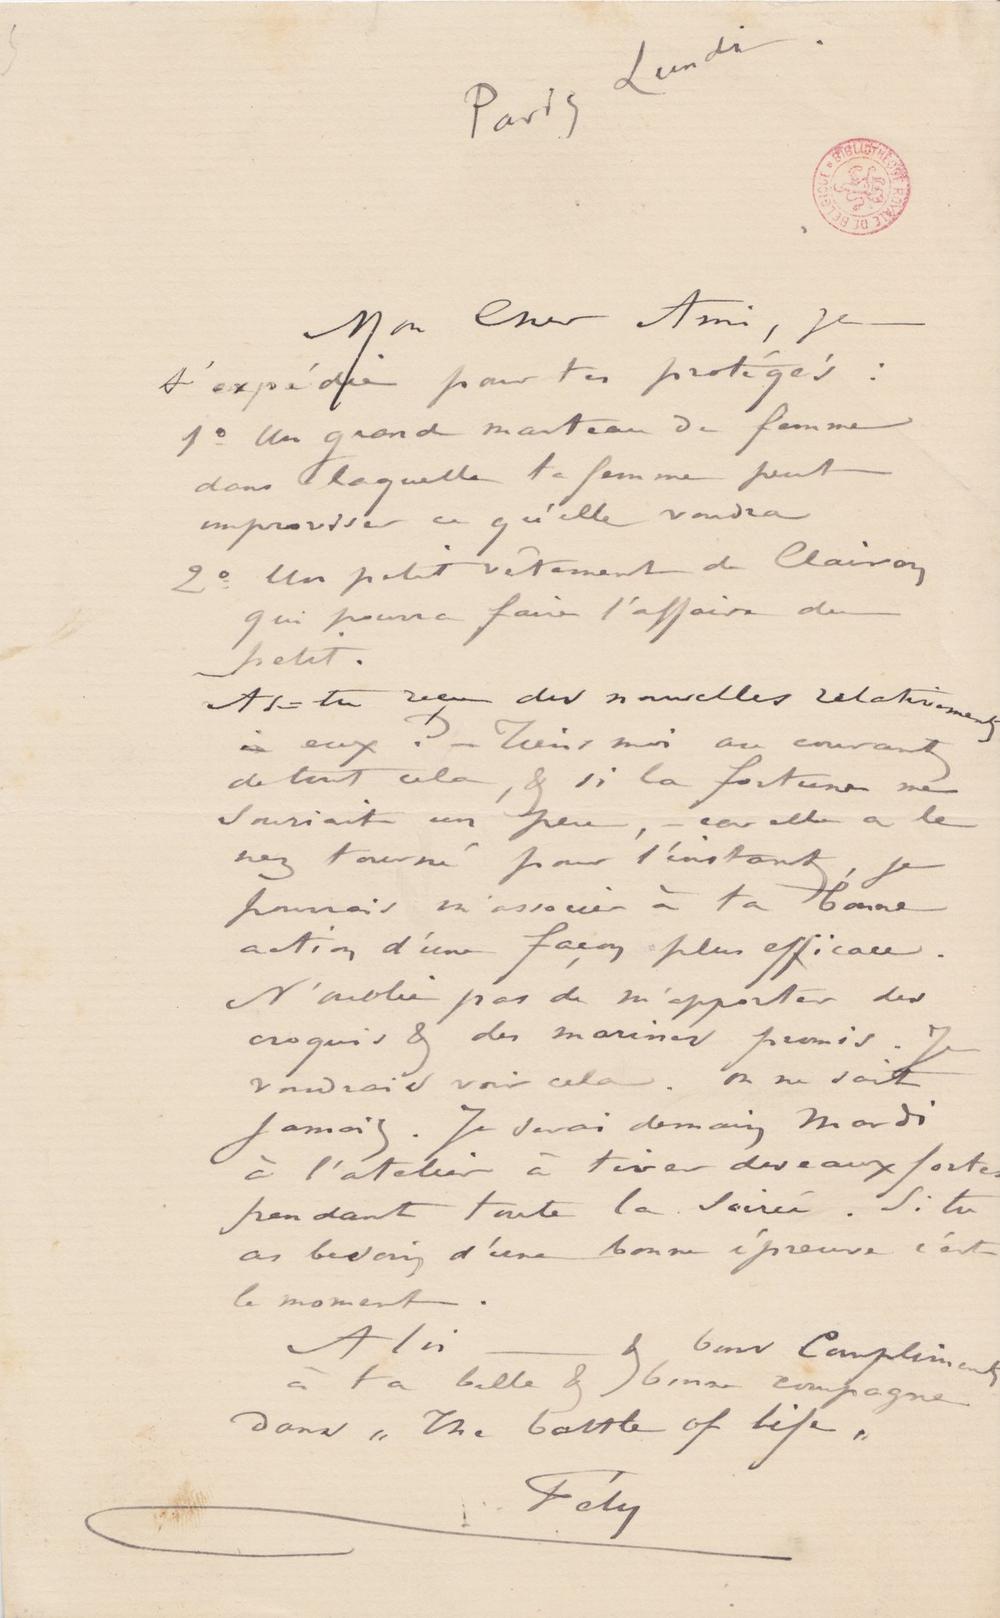 Paris Lundi .
BIBLIOTHEQUE ROYALE DE BELGIQUE
Mon Cher Ami, je
t'expédie pour tes protégés :
1º Un grand manteau de femme
dans laquelle ta femme peut
improviser ce qu'elle voudra
2º Un petit vêtement de Clairon
qui pourra faire l'affaire du
petit.
As=tu reçu des nouvelles relativement
à eux ? – Tiens moi au courant
de tout cela, & si la fortune me
souriait un peu, – car elle a le
nez tourné pour l'instant, je
pourrais m'associer à ta bonne
action d'une façon plus efficace.
N'oublie pas de m'apporter des
croquis & des marines promis. Je
voudrais voir cela. on ne sait
jamais. Je serai demain Mardi
à l'atelier à tirer des eaux fortes
pendant toute la soirée. Si tu
as besoin d'une bonne épreuve c'est
le moment.
A toi —— & bons Compliments
à ta belle & bonne compagne
dans „ The battle of life „
Fély